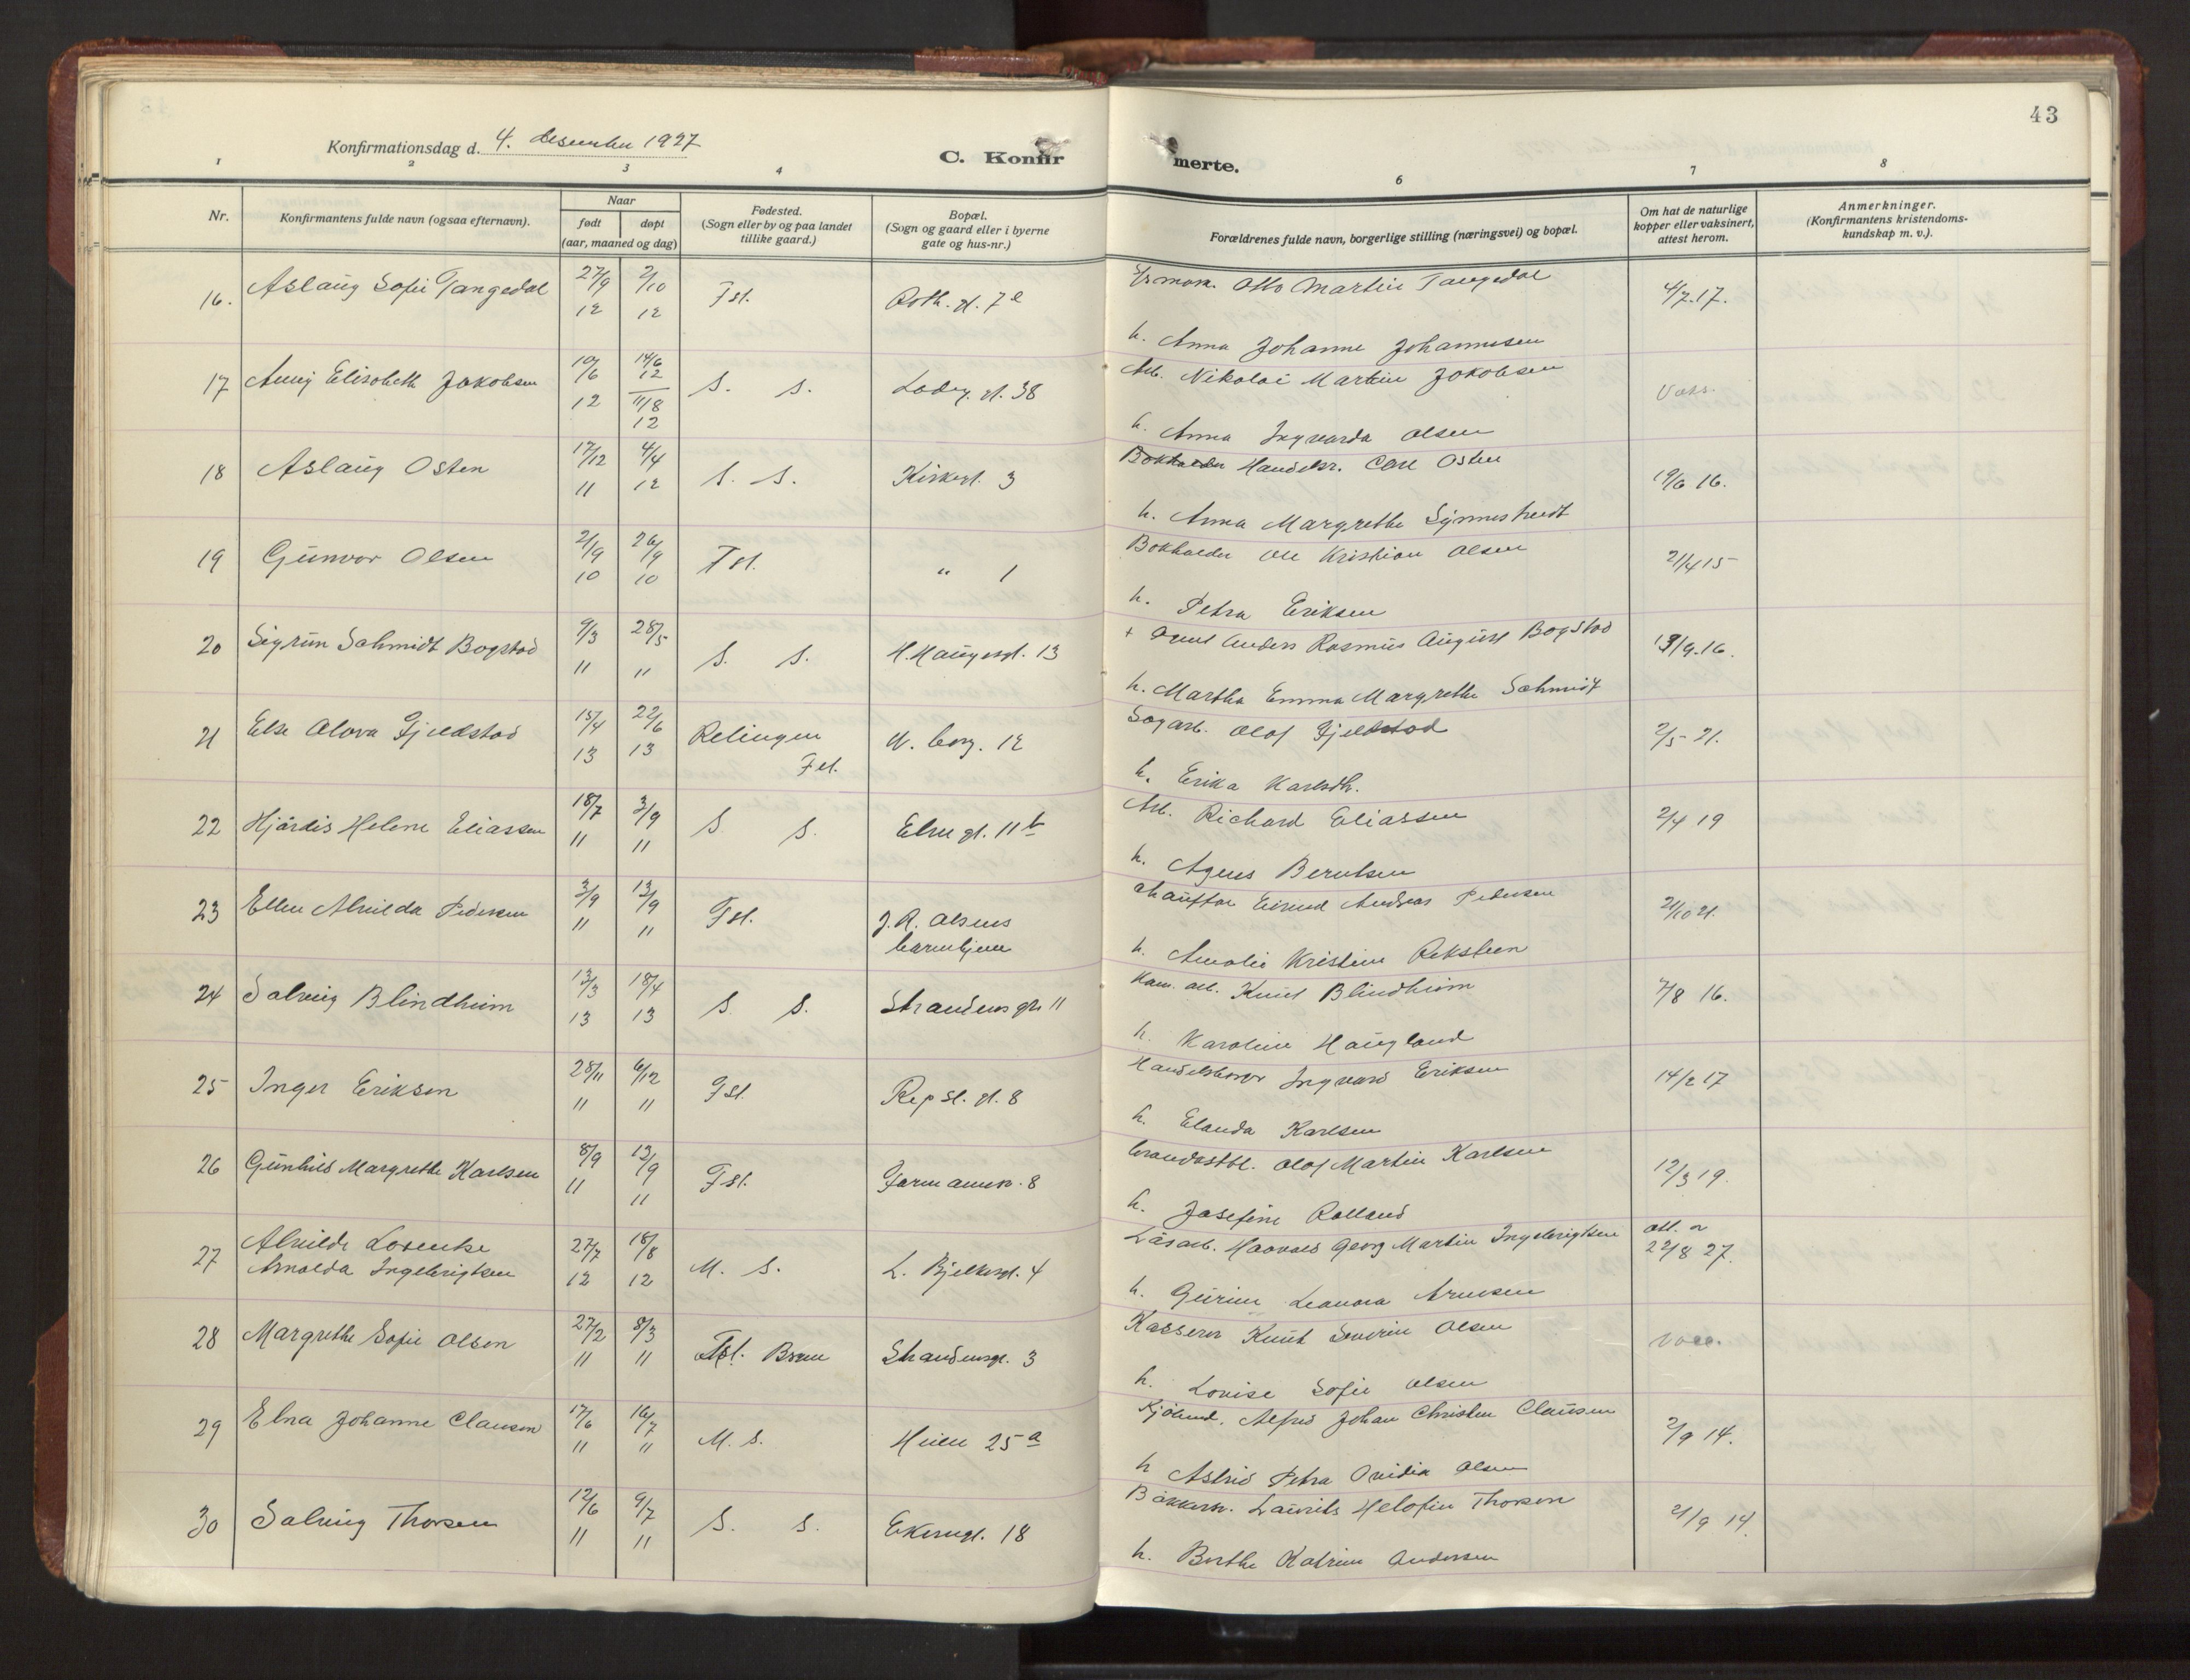 43
Konfirmationsdag d. 4. desember 1927
C. Konfir merte.
1 2 3 4 6 7 8
Nr.
Konfirmantens fulde navn (ogsaa efternavn).
Naar
født døpt
(aar, maaned og dag)
Fødested.
(Sogn eller by og paa landet
tillike gaard.)
Bopæl.
(Sogn og gaard eller i byerne
gate og hus-nr.)
Forældrenes fulde navn, borgerlige stilling (næringsvei) og bopæl.
Om hat de naturlige
kopper eller vaksinert,
attest herom.
Anmerkninger.
(Konfirmantens kristendoms-
kundskap m. v.).
16. Aslaug Sofie Tangedal 27/9 12 2/10 12 Fst. Roth. gt. 7e Otto Martin Tangedal 4/7.17.
h. Anna Johanne Johannesen
17 Annij Elisabeth Jakobsen 10/6 12 14/6 12 11/8 12 S. S. Ladeg. gt. 38 Arb. Nikolai Martin Jakobsen Vaks.
h. Anna Ingvarda Olsen
18 Aslaug Osten 17/12 11 4/4 12 S. S. Kirkegt. 3 Bokholder Handelsr. Carl Osten 19/6 16.
h. Anna Margrethe Synnestvedt
19 Gunvor Olsen 2/9 10 26/9 10 Fst. " 1 Bokholder Ole Kristian Olsen 21/4 15
h. Petra Eriksen
20 Sigrun Schmidt Bogstad 9/3 11 28/5 11 S. S. H. Haugesgt. 13 + Anders Rasmus August Bogstad 19/9.16.
h. Martha Emma Margrethe Schmidt
21 Else Olava Fjeldstad 15/4 13 22/6 13 Relingen Fet. N. berg. 12 Sagarb. Olaf Fjeldstad 2/5 21.
h. Erika Karlsdtr.
22 Hjördis Helene Eliassen 18/7 11 3/9 11 S S. Elseugt. 11b Arb. Richard Eliassen 2/4 19
h. Agnes Berntsen
23 Ellen Alvilda Pedersen 3/9 11 13/9 11 Fst. J. R. Olsens
barnhjem chauffør Eivind Andreas Pedersen 21/10 21.
h. Amalie Kristine Reksteen
24 Solveig Blindheim 13/3 13 18/4 13 S S. Strandens gt. 11 Knut Blindheim 7/8 16.
h. Karoline Haugland
25 Inger Eriksen 28/11 11 6/12 11 Fst. Repsl. gt. 8 Handelsborger Ingvard Eriksen 14/2 17
h. Elanda Karlsen
26 Gunhild Margrethe Karlsen 8/9 11 13/9 11 Fst. Formannsv. 8 brandkstbl. Olaf Martin Karlsen 12/3 19.
h. Josefine Rolland
27 Alvilde Lorentse
Arnolda Ingebrigtsen 27/7 12 18/8 12 M. S. L. Bjelkesgt. 4 Løsarb. Haavald Georg Martin Ingebrigtsen att. a
22/8 27.
h. Gurine Leonora Arnesen
28 Margrethe Sofie Olsen 27/2 11 8/3 11 Fst. Bruun Strandensgt. 3 Kasserer Knut Severin Olsen Vacc.
h. Lovise Sofie Olsen
29 Elna Johanne Clausen 17/6 11 16/7 11 M. S. Heien 25a Kjöbmd. Alfred Johan Christen Clausen 2/9 14.
h Astrid Petra Ovidia Olsen
30 Solveig Thorsen 12/6 11 9/7 11 S. S. Ekerengt. 18 Bakkersv. Laurits Helofin Thorsen 21/9 14.
h. Berthe Katrine Andersen